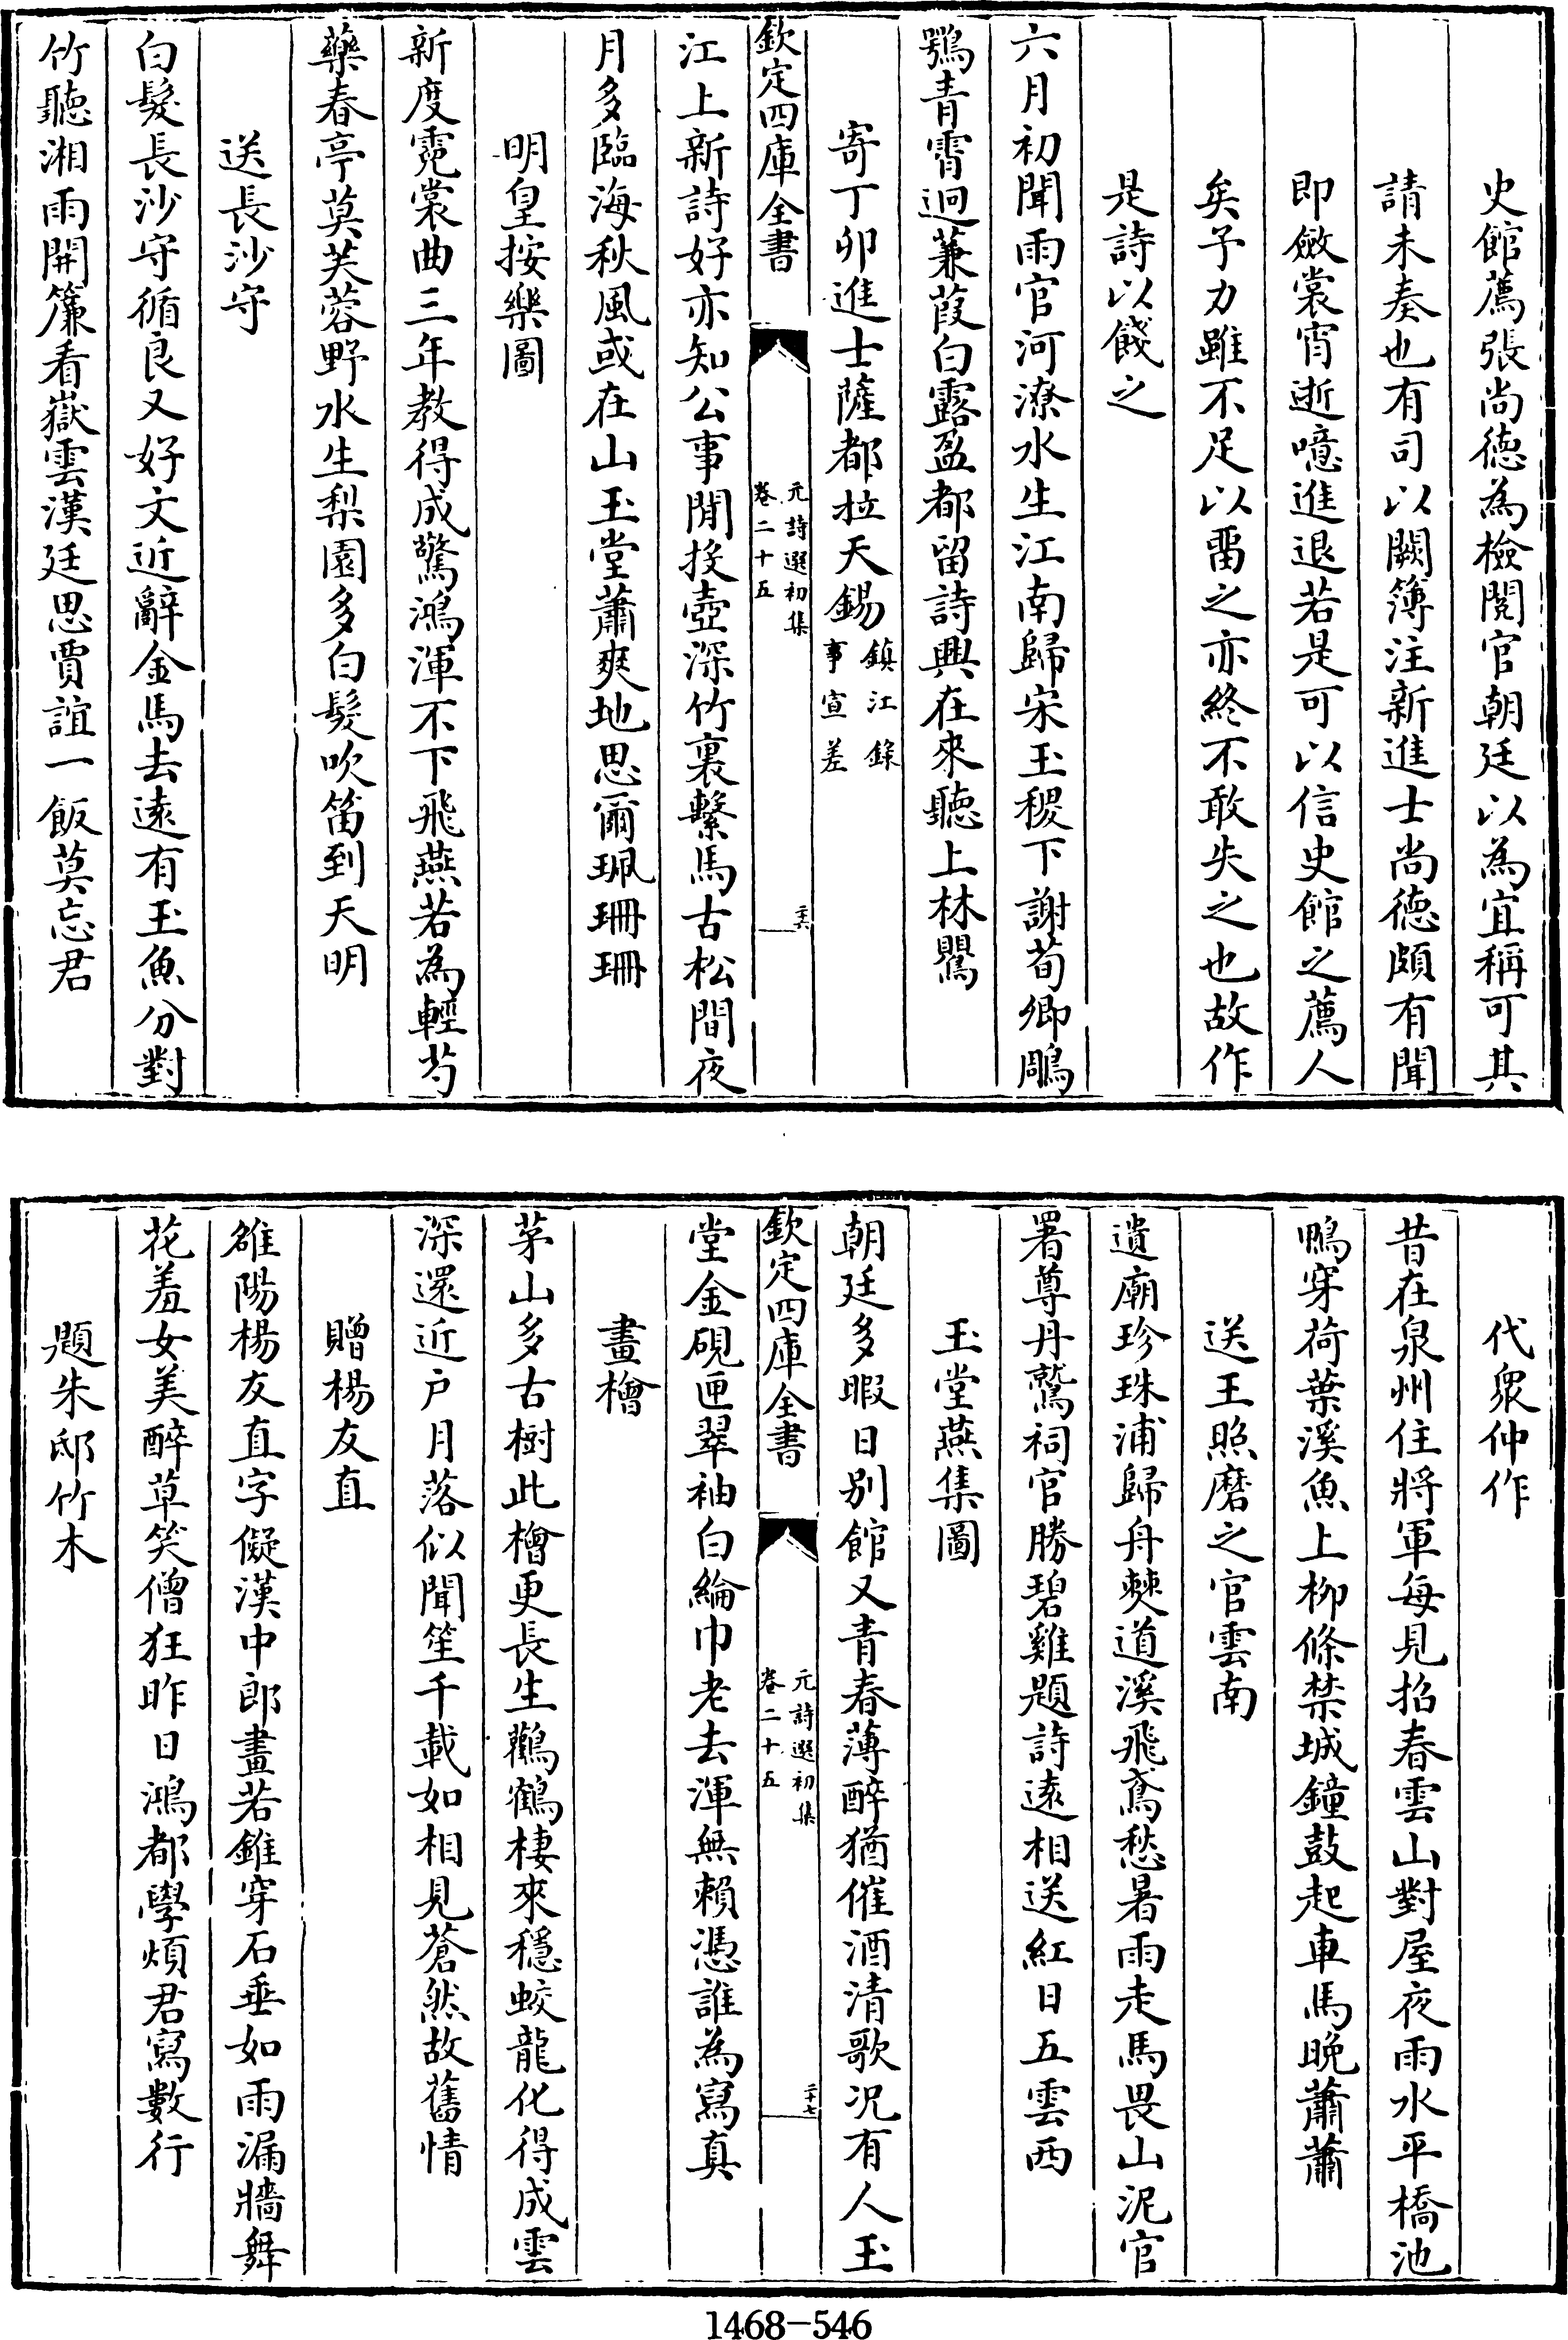 史館薦張尚德為檢閱官朝廷以為宜稱可其
請未奏也有司以闕簿注新進士尚德頗有聞
即斂裳宵逝噫進退若是可以信史館之薦人
矣予力雖不足以畱之亦終不敢失之也故作
是詩以餞之
六月初聞雨官河潦水生江南歸宋玉稷下謝荀卿鵰
鶚青霄迥蒹葭白露盈都留詩興在來聽上林鸎
寄丁卯進士薩都拉天錫鎮江錄事宣差
欽定四庫全書
元詩選初集
卷二十五
二十六
江上新詩好亦知公事閒投壺深竹裏繫馬古松間夜
月多臨海秋風或在山玉堂蕭爽地思爾珮珊珊
明皇按樂圖
新度霓裳曲三年教得成驚鴻渾不下飛燕若為輕芍
藥春亭莫芙蓉野水生梨園多白髮吹笛到天明
送長沙守
白髮長沙守循良又好文近辭金馬去遠有玉魚分對
竹聽湘雨開簾看嶽雲漢廷思賈誼一飯莫忘君
代衆仲作
昔在泉州住將軍每見招春雲山對屋夜雨水平橋池
鴨穿荷葉溪魚上柳條禁城鐘鼓起車馬晚蕭蕭
送王照磨之官雲南
遺廟珍珠浦歸舟僰道溪飛鳶愁暑雨走馬畏山泥官
署尊丹鷲祠官勝碧雞題詩遠相送紅日五雲西
玉堂燕集圖
朝廷多暇日別館又青春薄醉猶催酒清歌况有人玉
欽定四庫全書
元詩選初集
卷二十五
二十七
堂金硯匣翠袖白綸巾老去渾無賴憑誰為寫真
畫檜
茅山多古樹此檜更長生鸛鶴棲來穩蛟龍化得成雲
深還近户月落似聞笙千載如相見蒼然故舊情
贈楊友直
雒陽楊友直字儗漢中郎畫若錐穿石垂如雨漏牆舞
花羞女美醉草笑僧狂昨日鴻都學煩君寫數行
題朱邸竹木
1468-546